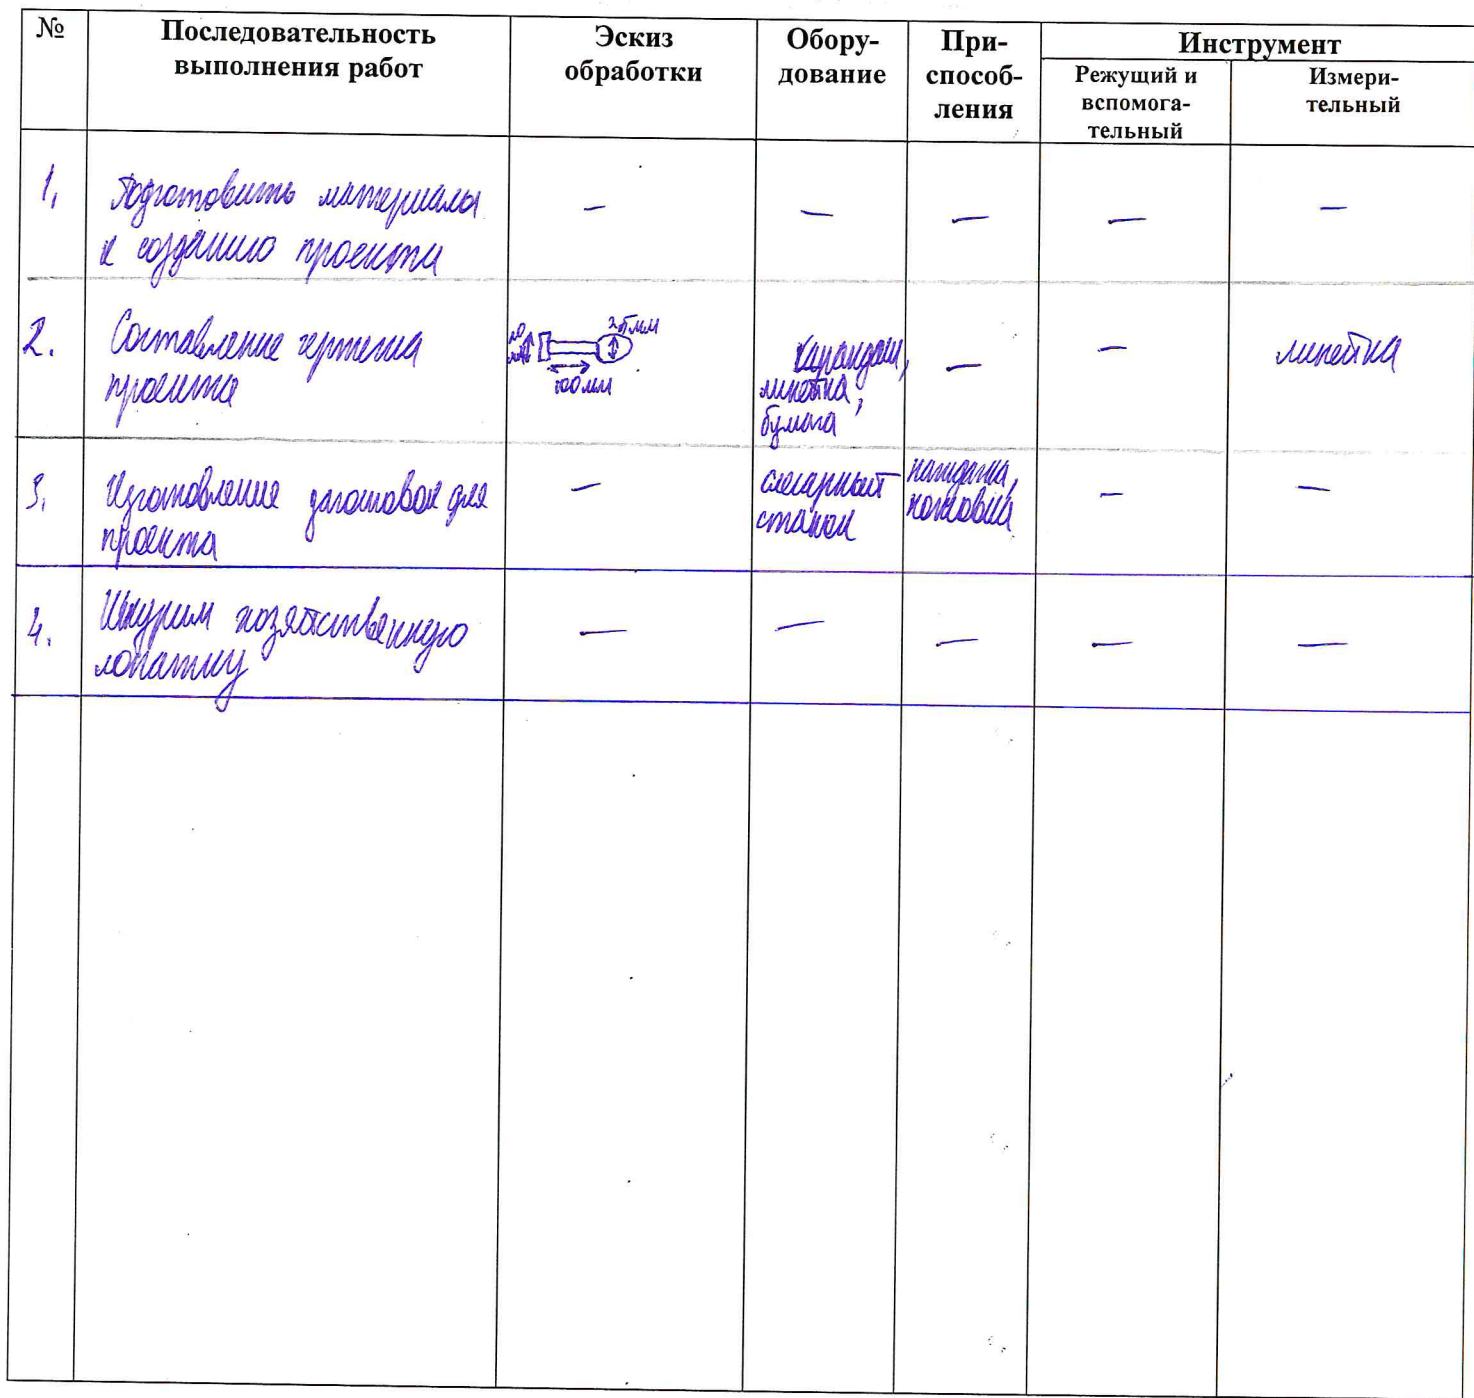 №
Последовательность
выполнения работ
Эскиз
обработки
Обору-
дование
При-
способ-
ления
Инструмент
Режущий и
вспомога-
тельный
Измери-
тельный
1,
Подготовить материалы
к созданию проекта
—
—
—
—
—
2.
Составление чертежа
проекта
20
25 мм
100 мм
карандаш,
линейка,
бумага
—
—
линейка
3.
Изготовление заготовок для
проекта
—
слесарный
станок
наждачка,
ножовка
—
—
4.
Шкурим хозяйственную
лопатку
—
—
—
—
—